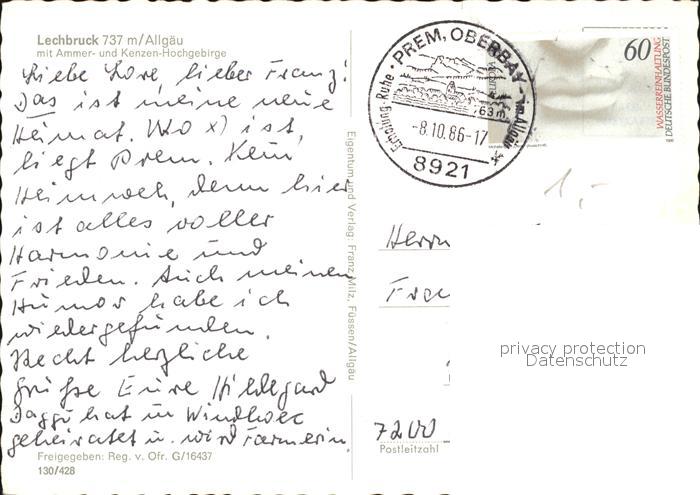 Lechbruck 737 m/Allgäu
mit Ammer- und Kenzen-Hochgebirge
Liebe Lore, lieber Franz!
Das ist meine neue
Heimat. Wo x) ist,
liegt Prem. Kein
Heimweh, denn hier
ist alles voller
Harmonie und
Frieden. Auch meinen
Humor habe ich
wiedergefunden.
Recht herzliche
Grüße Eure Hildegard
Daggi hat in Windhoek
geheiratet u. wird Farmerin.
Freigegeben: Reg. v. Ofr. G/16437
130/428
Eigentum und Verlag: Franz Milz, Füssen/Allgäu
PREM, OBERBAY
Erholung · Ruhe
im Allgäu
763 m
-8.10.86-17
8921
EUROPA
60
WASSERREINHALTUNG
DEUTSCHE BUNDESPOST
1,-
Herrn
Fra
privacy protection
Datenschutz
7200
Postleitzahl